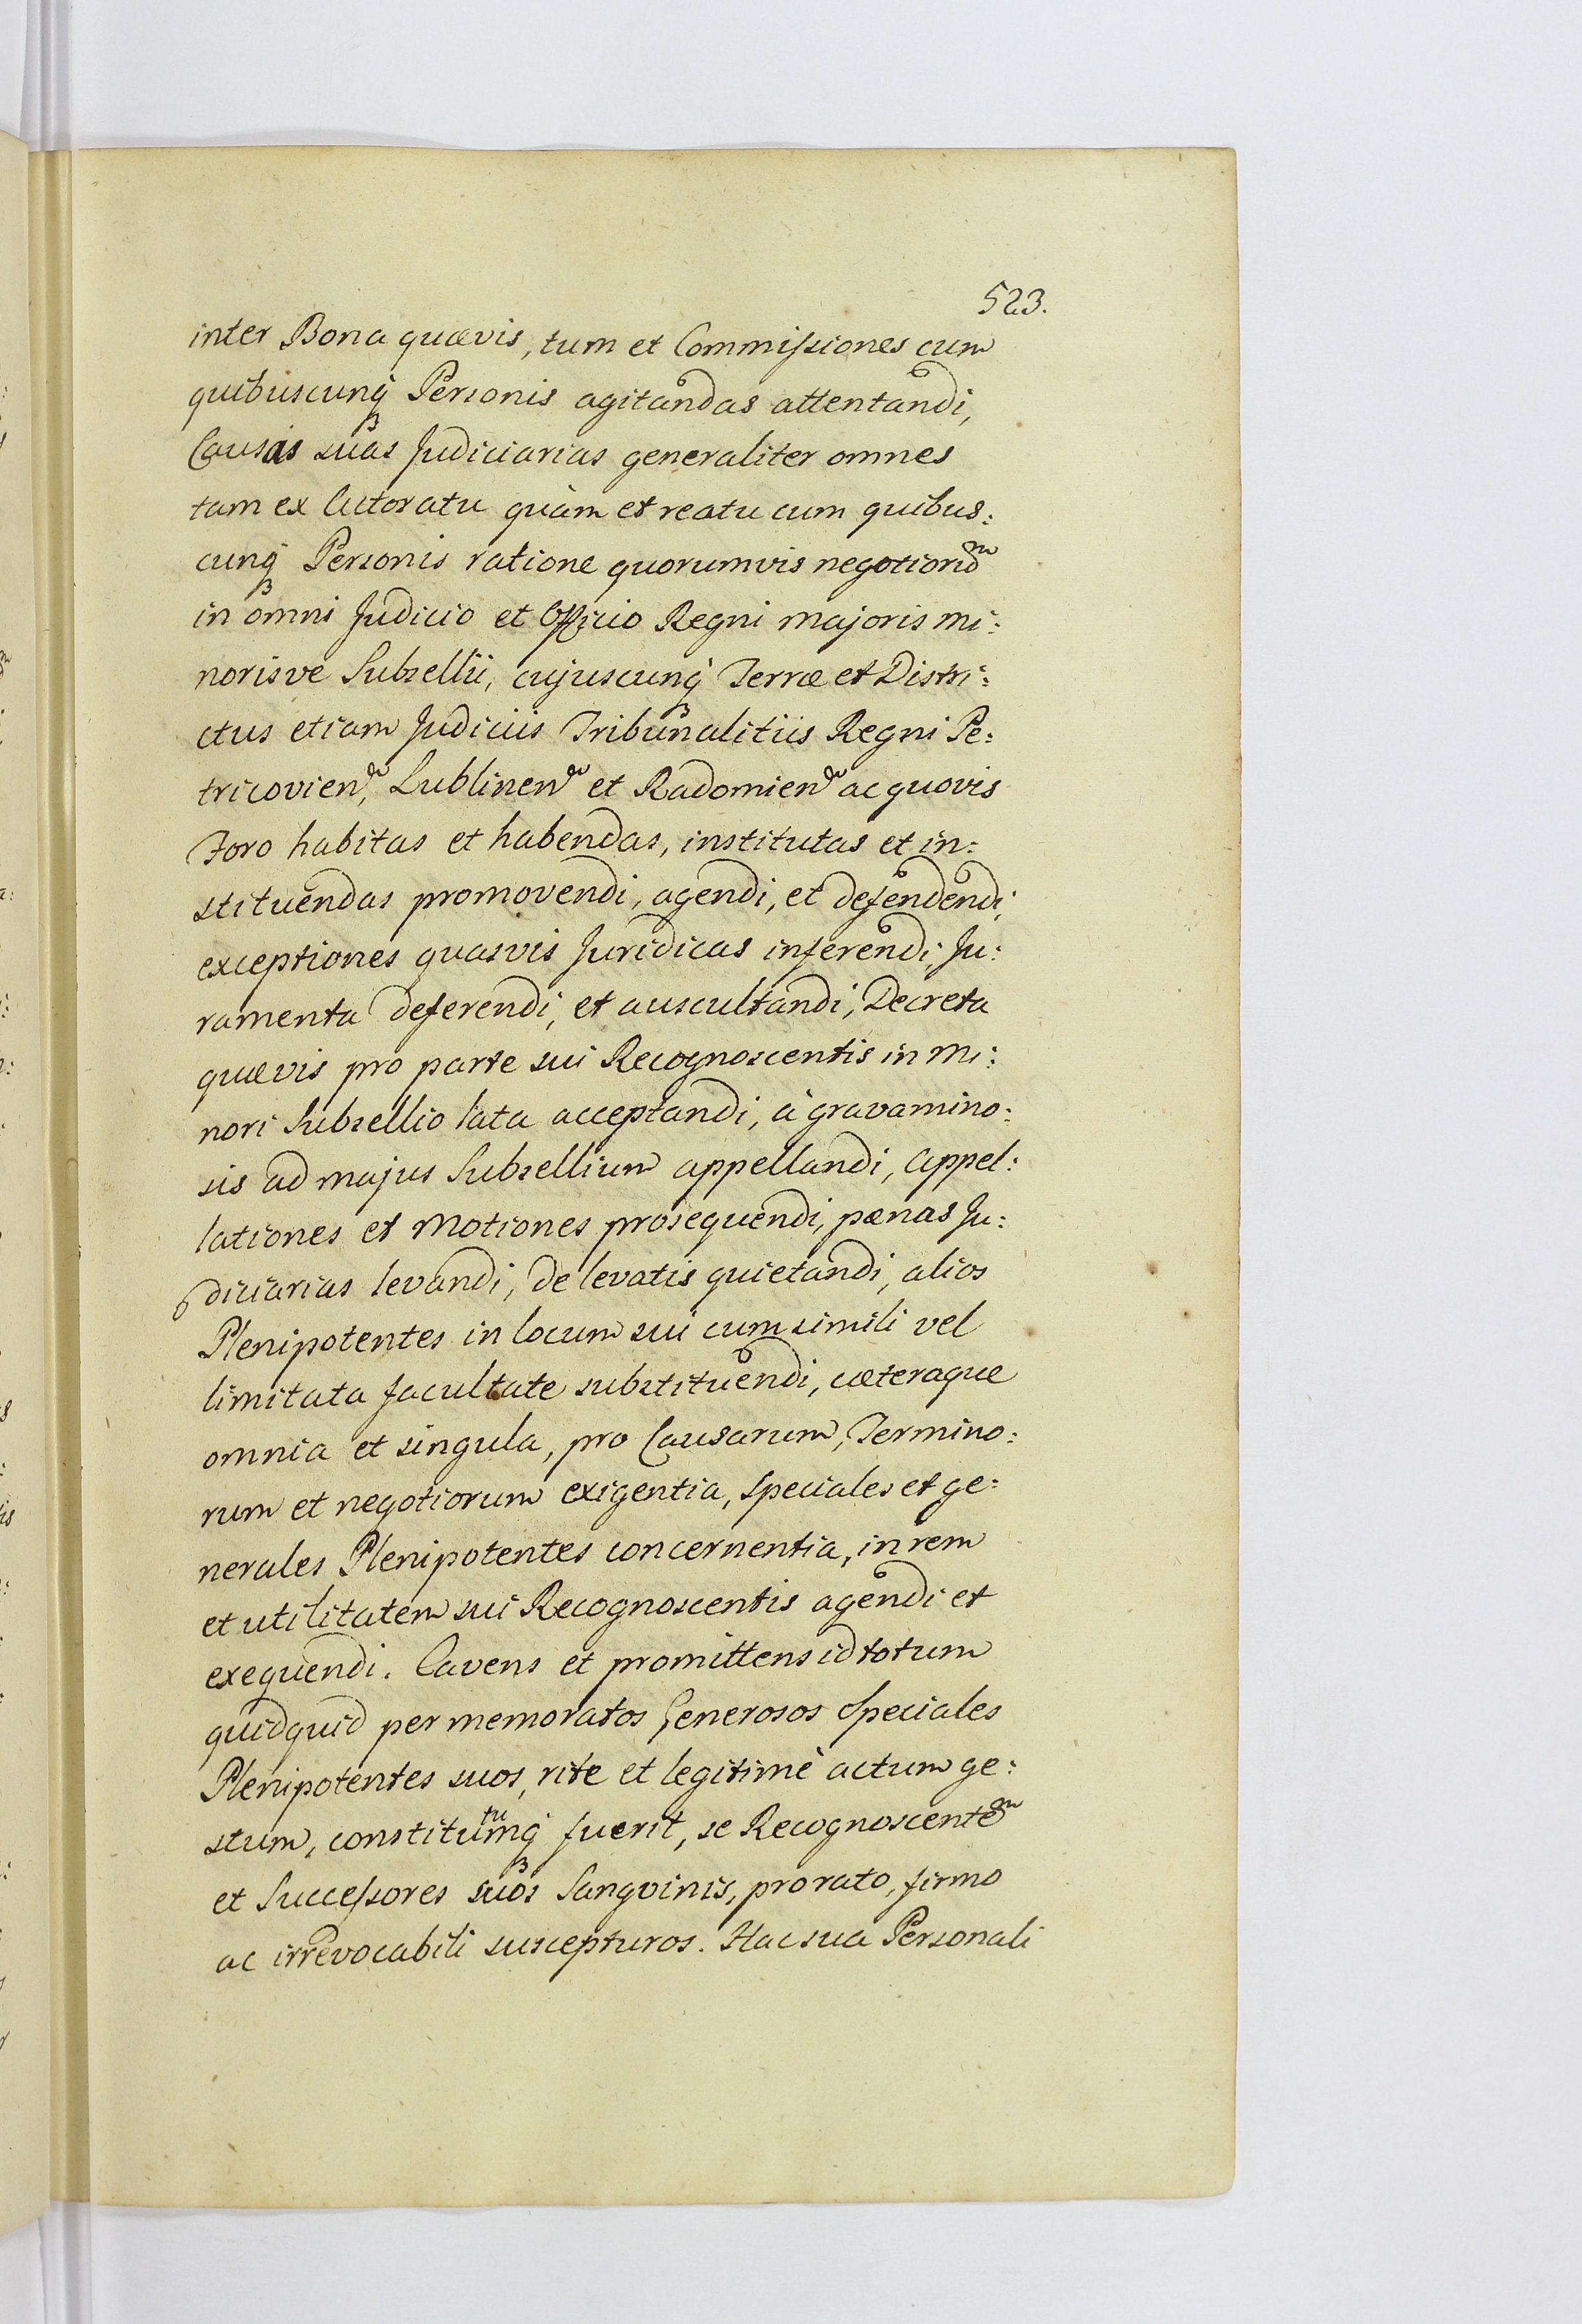 523.
inter Bona quævis, tum et Commissiones cum
quibuscunq3 Personis agitandas attentandi,
Causas suas Judiciarias generaliter omnes
tam ex Actoratu quàm et reatu cum quibus:
cunq3 Personis ratione quorumvis negotioru͠m
in omni Judicio et Officio Regni majoris mi:
norisve Subsellii, cujuscunq3 Terræ et Distri:
ctus etiam Judiciis Tribunalitiis Regni Pe:
tricovien, Lublinen et Radomien ac quovis
Foro habitas et habendas, institutas et in:
stituendas promovendi, agendi, et defendendi,
exceptiones quasvis Juridicas inferendi, Ju:
ramenta deferendi, et auscultandi, Decreta
quævis pro parte sui Recognoscentis in mi:
nori Subsellio lata acceptandi, à gravamino:
sis ad majus Subsellium appellandi, Appel:
lationes et Motiones prosequendi, pænas Ju:
diciarias levandi, de levatis quietandi, alios
Plenipotentes in locum sui cum simili vel
limitata facultate substituendi, cæteraque
omnia et singula, pro Causarum, Termino:
rum et negotiorum exigentia, speciales et ge:
nerales Plenipotentes concernentia, in rem
et utilitatem sui Recognoscentis agendi et
exequendi. Cavens et promittens id totum
quidquid per memoratos Generosos Speciales
Plenipotentes suos, rite et legitimè actum ge:
stum, constitutumq3 fuerit, se Recognoscentem
et Successores suos Sangvinis, pro rato, firmo
ac irrevocabili suscepturos. Hac sua Personali